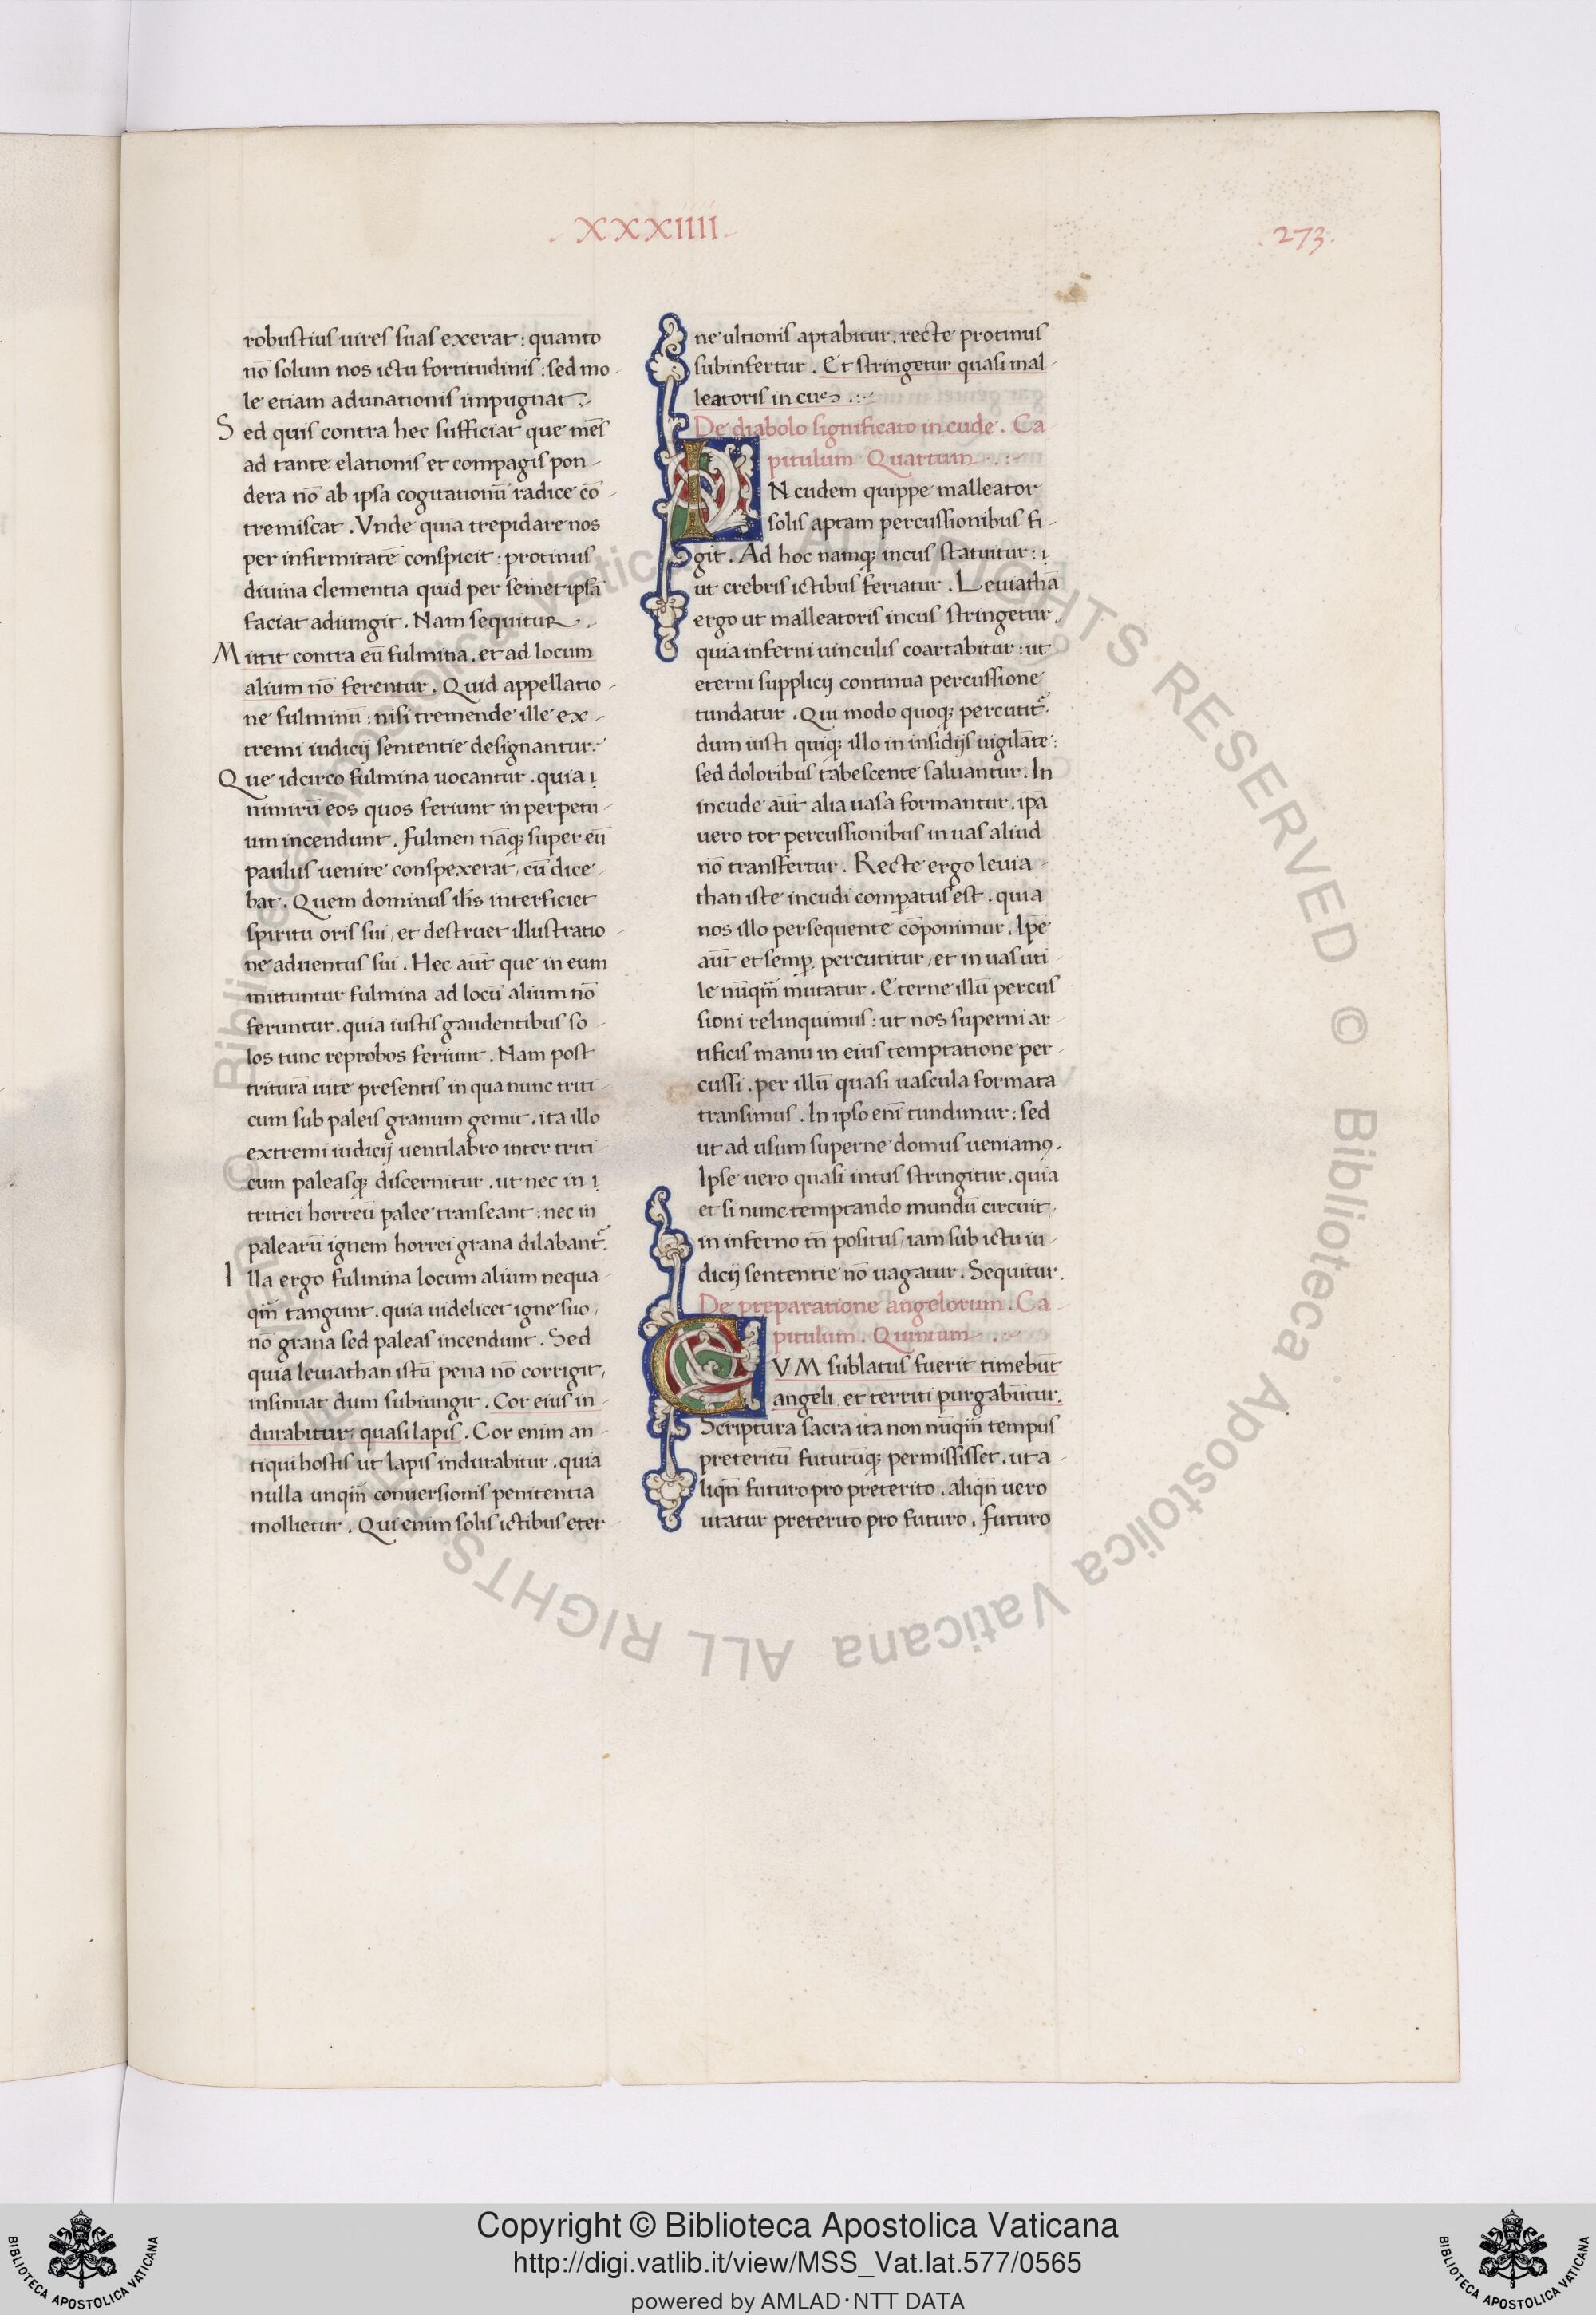 . XXXIIII .
. 273 .
robustius uires suas exerat : quanto
nō solum nos ictu fortitudinis : sed mo-
le etiam adunationis impugnat .
Sed quis contra hec sufficiat que mēs
ad tante elationis et compagis pon-
dera nō ab ipsa cogitationū radice cō-
tremiscat . Vnde quia trepidare nos
per infirmitatē conspicit : protinus
diuina clementia quid per semet ipsā
faciat adiungit . Nam sequitur .
Mittit contra eū fulmina . et ad locum
alium nō ferentur . Quid appellatio-
ne fulminū : nisi tremende ille ex-
tremi iudicij sententie designantur .
Que idcirco fulmina uocantur . quia ı
nimirū eos quos feriunt in perpetu-
um incendunt . fulmen nāq; super eū
paulus uenire conspexerat , cū dice-
bat . Quem dominus ihs̄ interficiet
spiritu oris sui , et destruet illustratio-
ne aduentus sui . Hec aūt que in eum
mittuntur fulmina ad locū alium nō
feruntur . quia iustis gaudentibus so-
los tunc reprobos feriunt . Nam post
triturā uite presentis in qua nunc triti-
cum sub paleis granum gemit . ita illo
extremi iudicij uentilabro inter triti-
cum paleasq; discernitur . ut nec in ı
tritici horreū palee transeant : nec in
palearū ignem horrei grana dilabant᷑.
Illa ergo fulmina locum alium nequa-
qm̄ tangunt . quia uidelicet igne suo ,
nō grana sed paleas incendunt . Sed
quia leuiathan istū pena nō corrigit ,
insinuat dum subiungit . Cor eius in-
durabitur , quasi lapis . Cor enim an-
tiqui hostis ut lapis indurabitur . quia
nulla unqm̄ conuersionis penitentia
mollietur . Qui enim solis ictibus eter-
ne ultionis aptabitur . recte protinus
subinfertur . Et stringetur quasi mal-
leatoris in cus .:-
De diabolo significato in cude . Ca-
pitulum Quartum .:-
IN cudem quippe malleator
solis aptam percussionibus fi-
git . Ad hoc namq; incus statuitur : ı
ut crebris ictibus feriatur . Leuiathā
ergo ut malleatoris incus stringetur .
quia inferni uinculis coartabitur : ut
eterni supplicij continua percussione
tundatur . Qui modo quoq; percutit᷑.
dum iusti quiq; illo in insidijs uigilāte :
sed doloribus tabescente saluantur . In
incude aūt alia uasa formantur . ipā
uero tot percussionibus in uas aliud
nō transfertur . Recte ergo leuia-
than iste incudi comparatus est . quia
nos illo persequente cōponimur . Ipē
aūt et semp̱ percutitur , et in uas uti-
le nūqm̄ mutatur . Eterne illū percus
sioni relinquimus : ut nos superni ar-
tificis manu in eius temptatione per-
cussi . per illū quasi uascula formata
transimus . In ipso enī tundimur : sed
ut ad usum superne domus ueniamꝰ .
Ipse uero quasi intus stringitur . quia
et si nunc temptando mundū circuit ,
in inferno tn̄ positus , iam sub ictu iu-
dicij sententie nō uagatur . Sequitur .
De preparatione angelorum . Ca-
pitulum . Quintum .
CVM sublatus fuerit timebūt
angeli , et territi purgabūtur .
Scriptura sacra ita non nūqm̄ tempus
preteritū futurūq; permississet . ut a-
liqn̄ futuro pro preterito . aliqn̄ uero
utatur preterito pro futuro . futuro
© Biblioteca Apostolica Vaticana ALL RIGHTS RESERVED
© Biblioteca Apostolica Vaticana ALL RIGHTS RESERVED
Copyright © Biblioteca Apostolica Vaticana
http://digi.vatlib.it/view/MSS_Vat.lat.577/0565
powered by AMLAD·NTT DATA
BIBLIOTECA APOSTOLICA VATICANA
BIBLIOTECA APOSTOLICA VATICANA